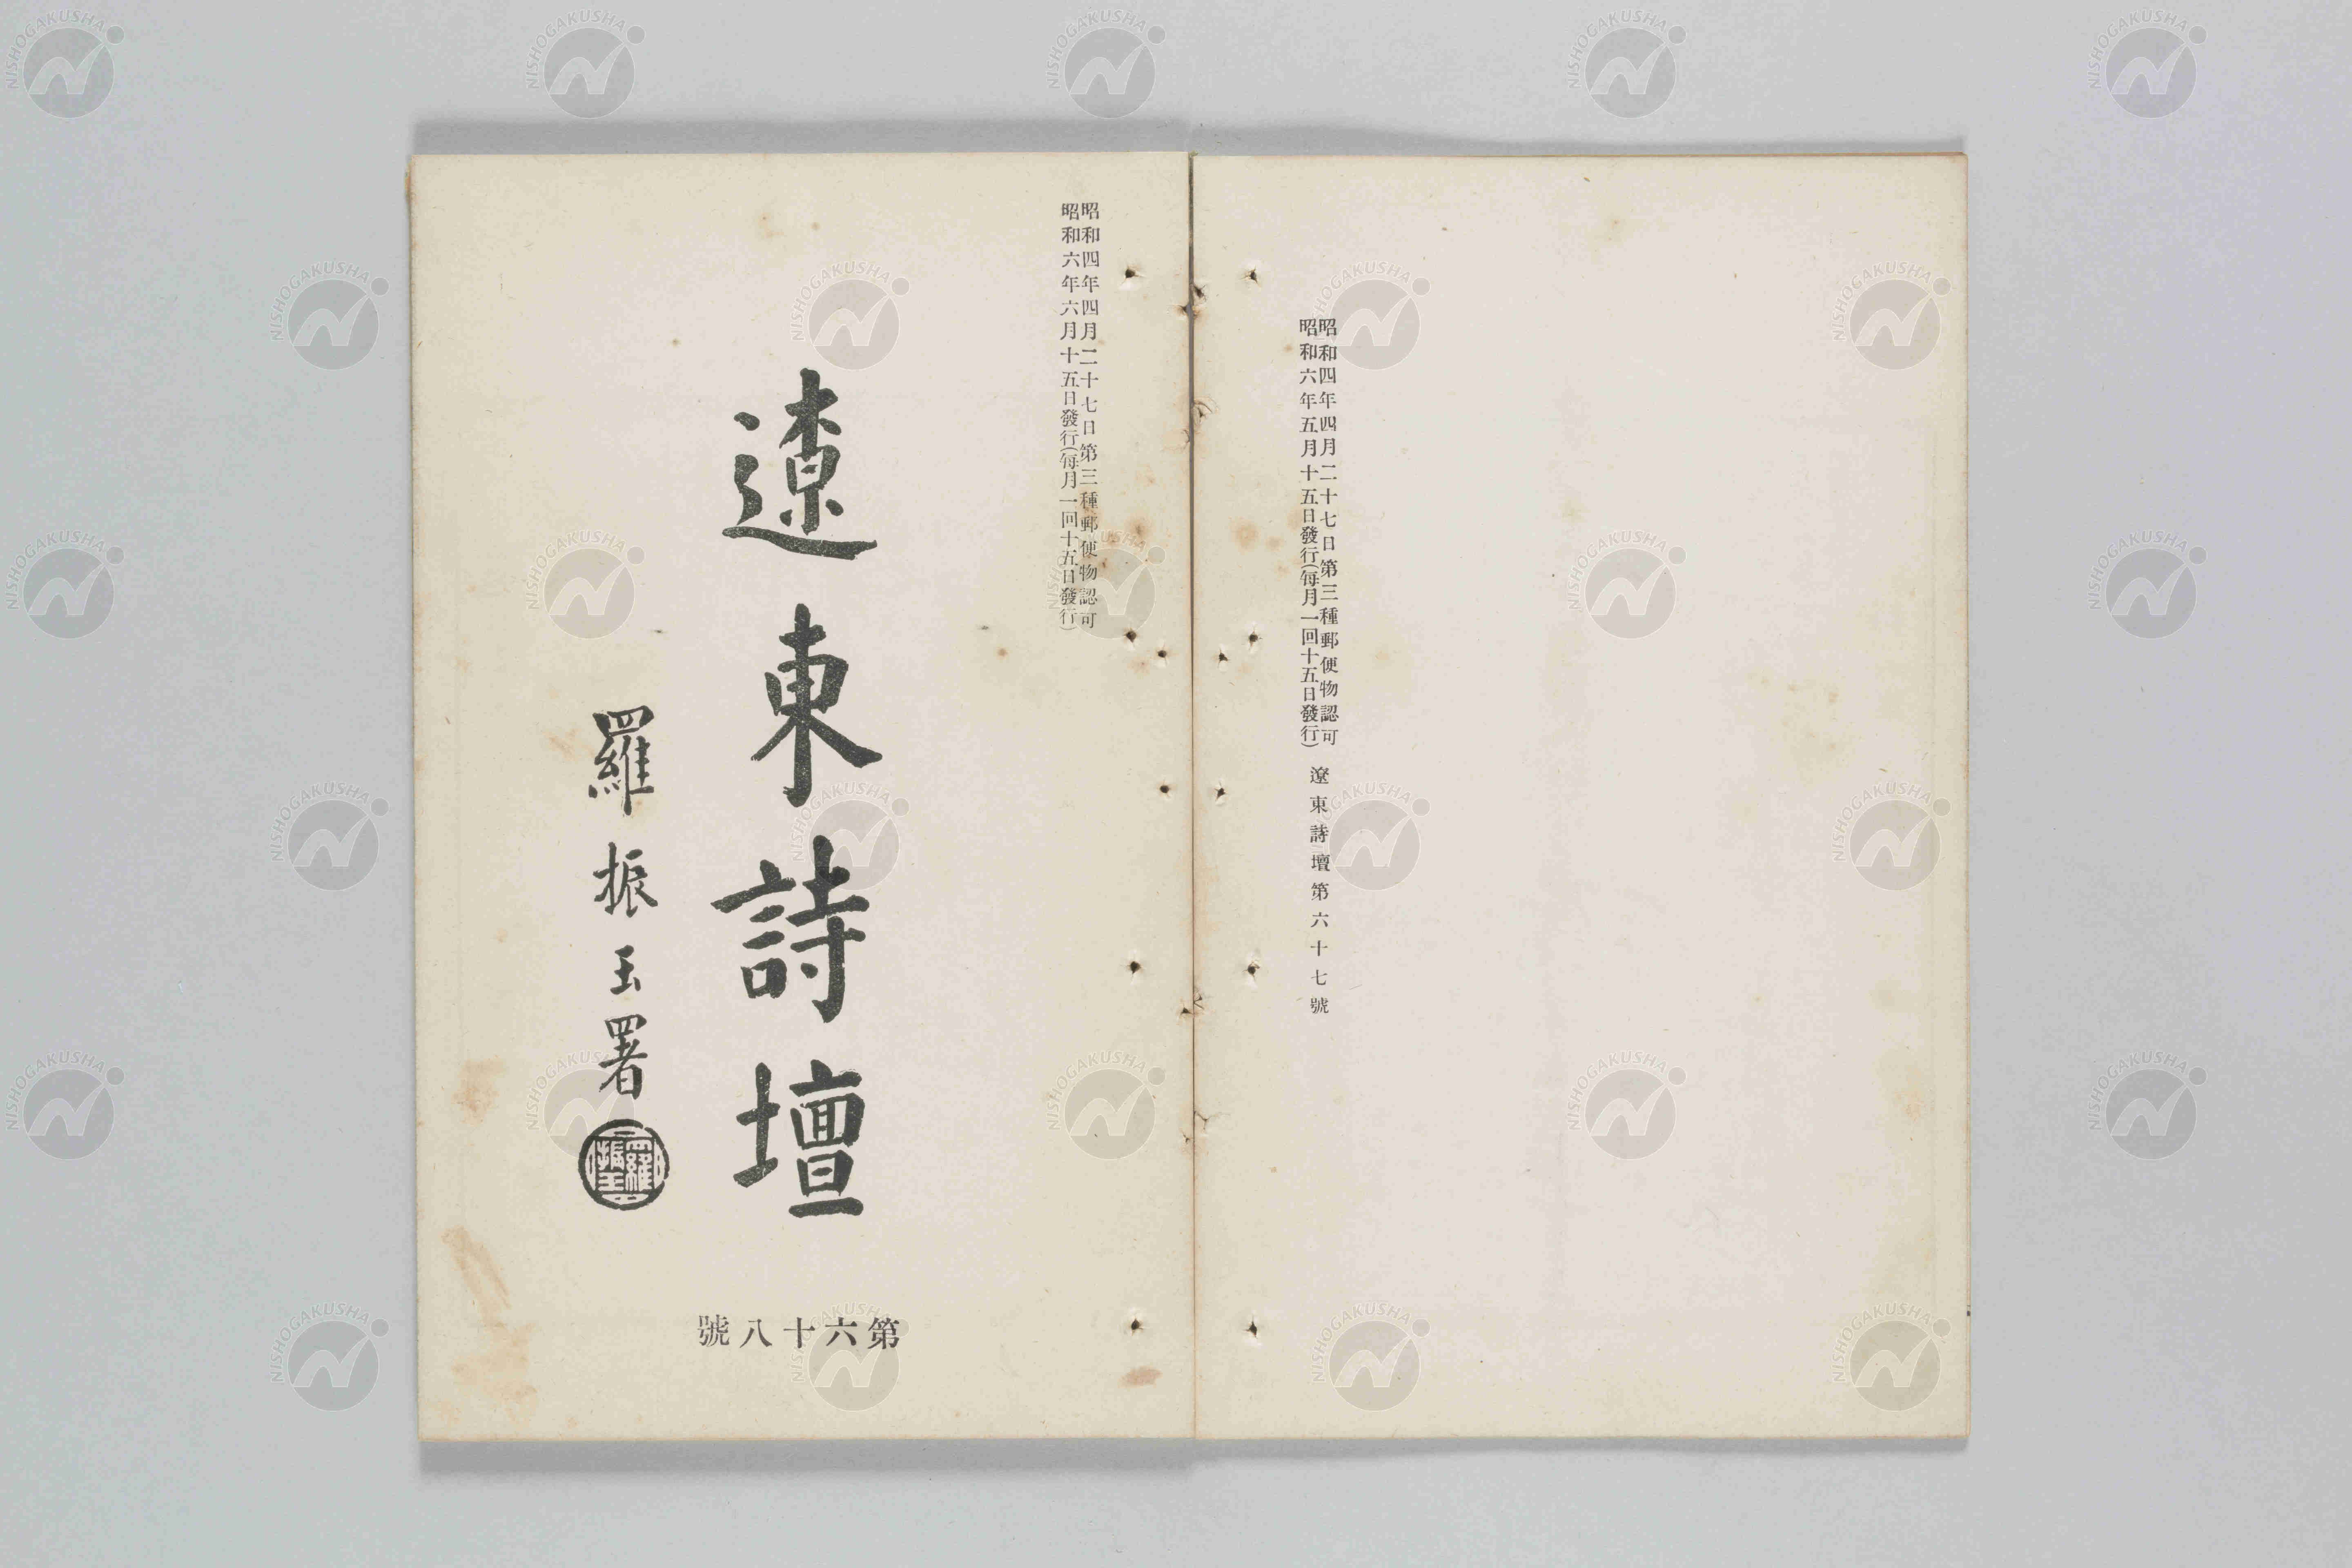 昭和四年四月二十七日第三種郵便物認可
昭和六年五月十五日發行(每月一回十五日發行)
遼東詩壇第六十七號
昭和四年四月二十七日第三種郵便物認可
昭和六年六月十五日發行(每月一回十五日發行)
遼東詩壇
羅振玉署
羅振玉印
第六十八號
NISHOGAKUSHA